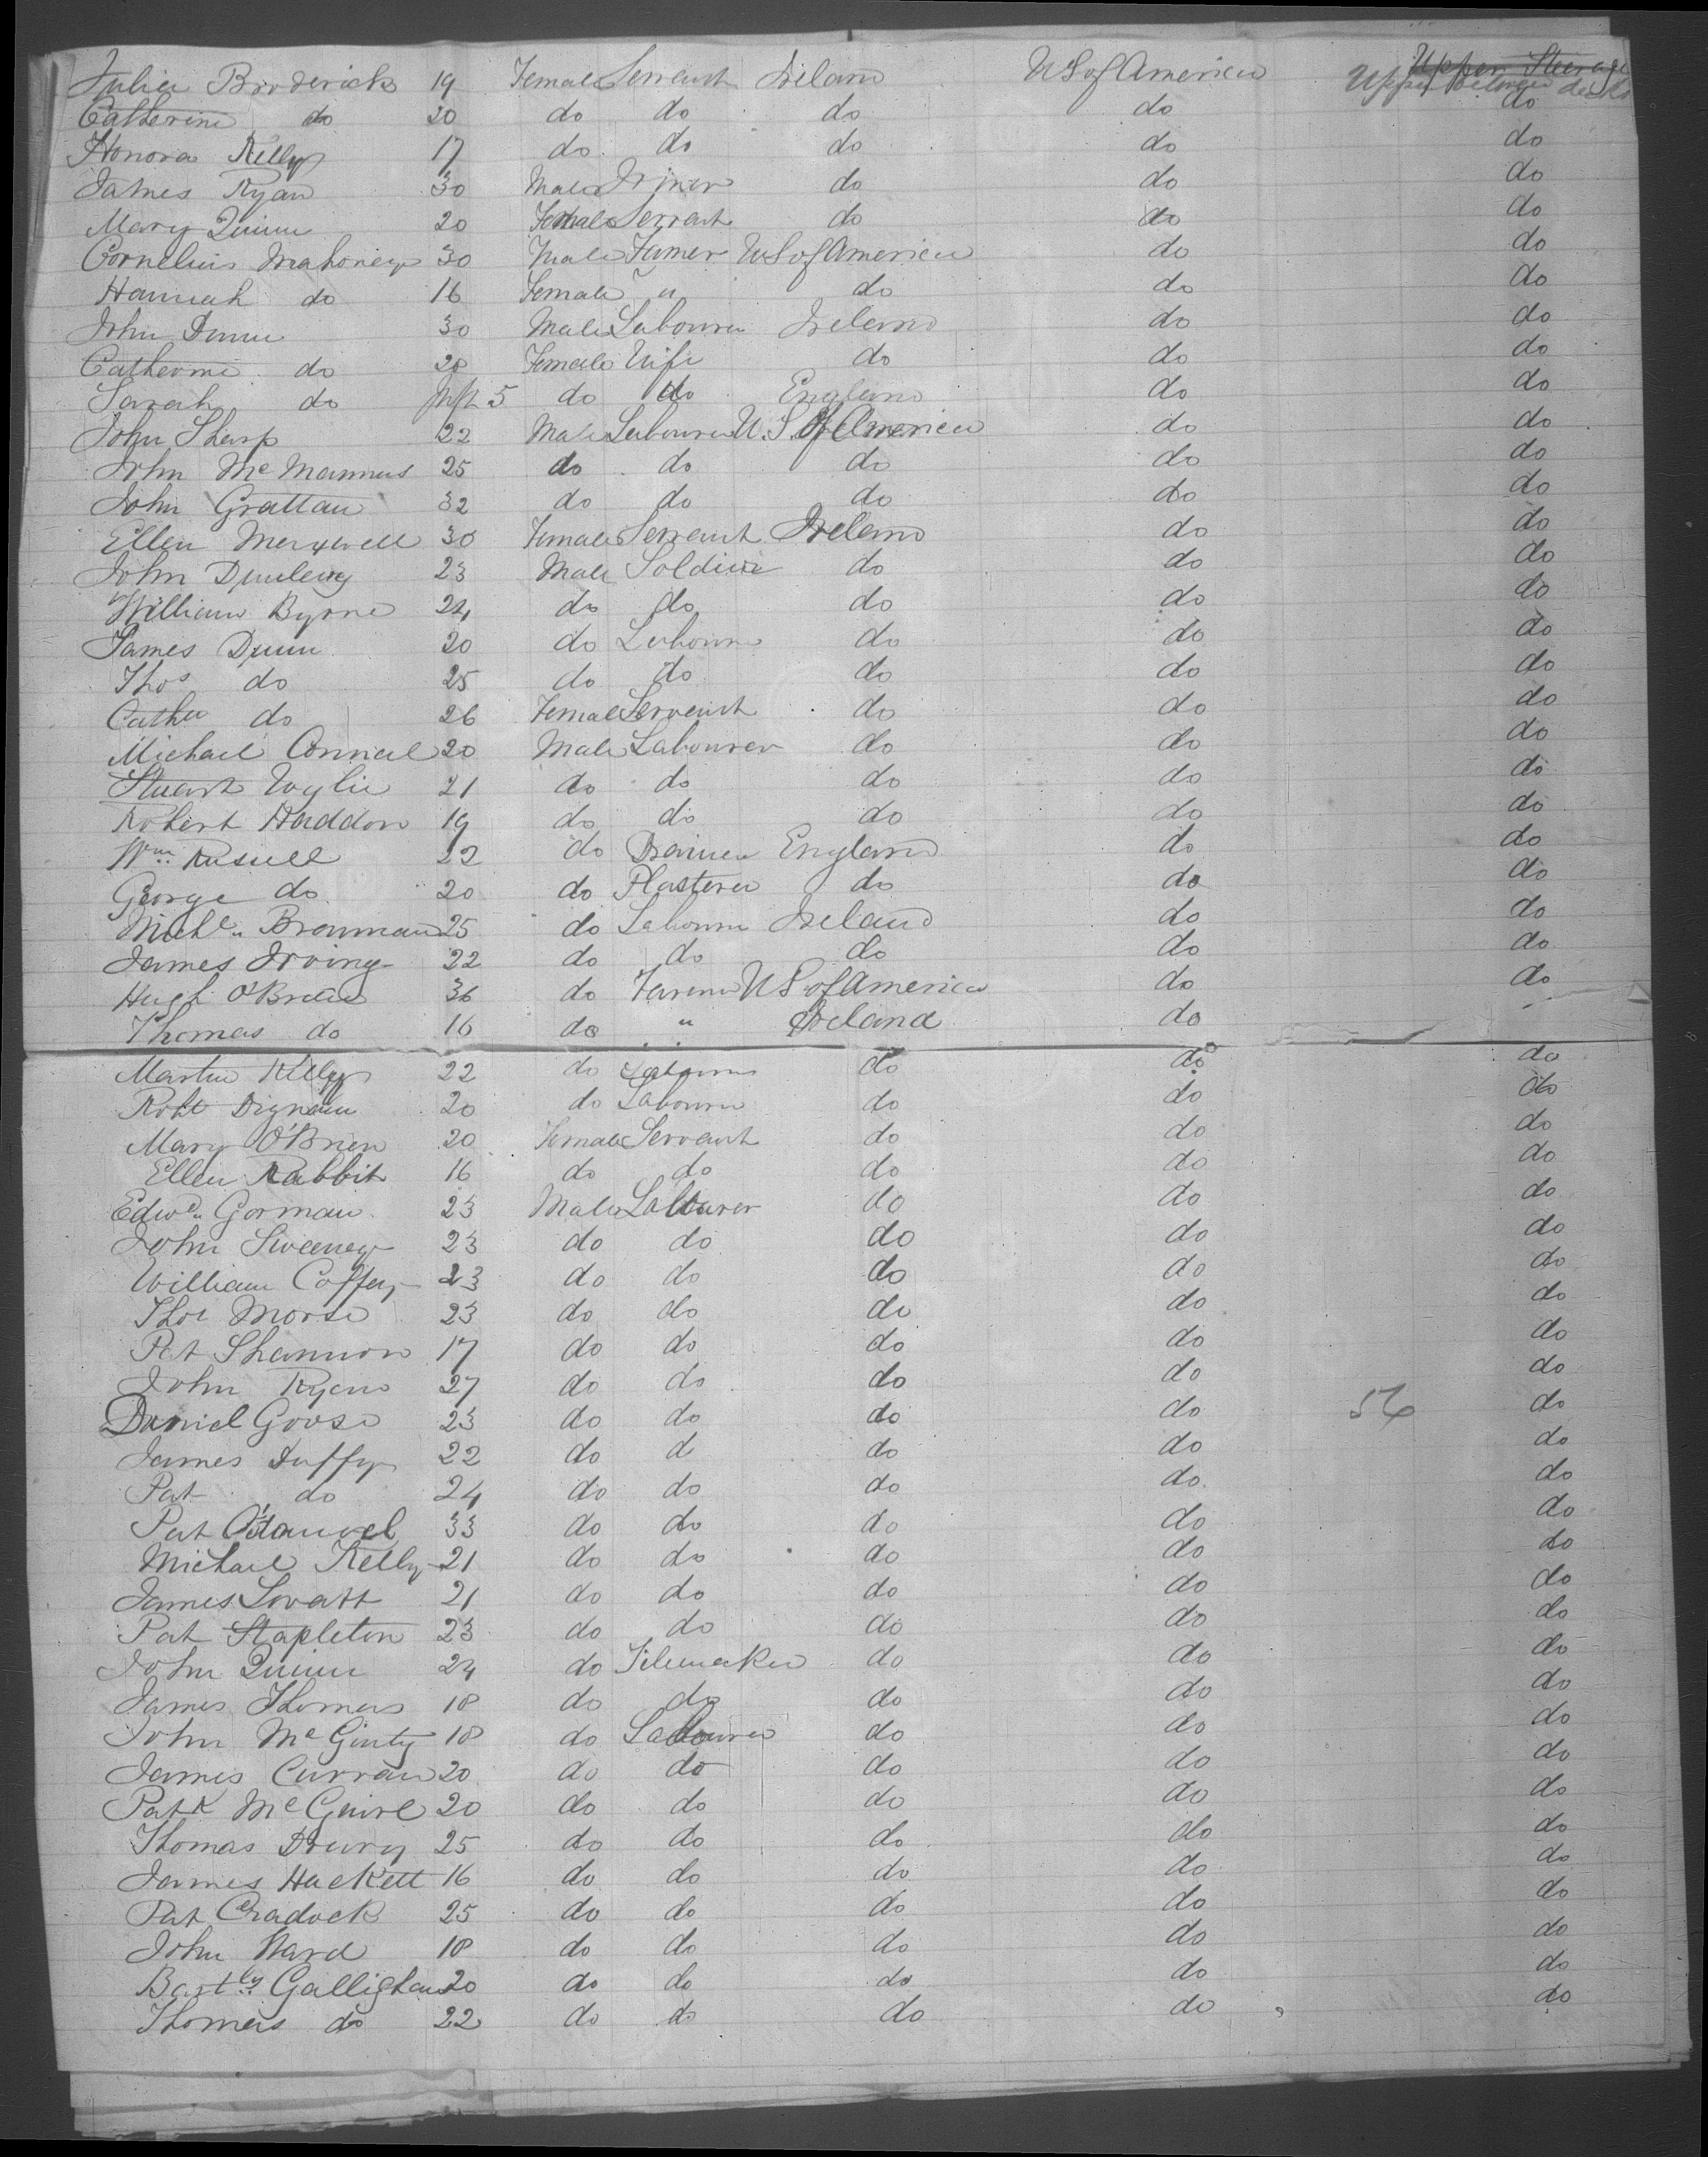 Julia Broderick 19 Female Servant Ireland US of America Upper Steerage
Upper between decks
Catherine do 20 do do do do do
Honora Kelly 17 do do do do do
James Ryan 30 Male Miner do do do
Mary Quinn 20 Female Servant do do do
Cornelius Mahoney 30 Male Farmer US of America do do
Hannah do 16 Female " do do do
John Dunn 30 Male Labourer Ireland do do
Catherine do 20 Female Wife do do do
Sarah do Inft 5 do do England do do
John Sharp 22 Male Labourer U.S. of America do do
John McMannus 25 do do do do do
John Grattan 32 do do do do do
Ellen Maxwell 30 Female Servant Ireland do do
John Dunleavy 23 Male Soldier do do do
William Byrne 24 do do do do do
James Dunn 20 do Labourer do do do
Thos do 25 do do do do do
Cathe do 26 Female Servant do do do
Michael Conneel 20 Male Labourer do do do
Stuart Wylie 21 do do do do do
Robert Haddon 19 do do do do do
Wm Russell 22 do England do do
George do 20 do Plasterer do do do
Michl. Brannan 25 do Labourer Ireland do do
James Irving 22 do do do do do
Hugh O'Brien 36 do Farmer US of America do do
Thomas do 16 do " Ireland do
Martin Kelly 22 do Labourer do do do
Robt Dignam 20 do Labourer do do do
Mary O'Brien 20 Female Servant do do do
Ellen Rabbit 16 do do do do do
Edwd. Gorman 23 Male Labourer do do do
John Sweeney 23 do do do do do
William Coffey 23 do do do do do
Thos Morse 23 do do do do do
Pat Shannon 17 do do do do do
John Ryan 27 do do do do do
Daniel Goose 23 do do do do 56 do
James Duffy 22 do d do do do
Pat do 24 do do do do do
Pat 33 do do do do do
Michael Kelly 21 do do do do do
James Lovatt 21 do do do do do
Pat Stapleton 23 do do do do do
John Quinn 24 do Tilemaker do do do
James Thomas 18 do do do do do
John McGinty 18 do Labourer do do do
James Curran 20 do do do do do
Patk McGuire 20 do do do do do
Thomas Drury 25 do do do do do
James Hackett 16 do do do do do
Pat Cradock 25 do do do do do
John Ward 18 do do do do do
Bartly Gallighan 20 do do do do do
Thomas do 22 do do do do do